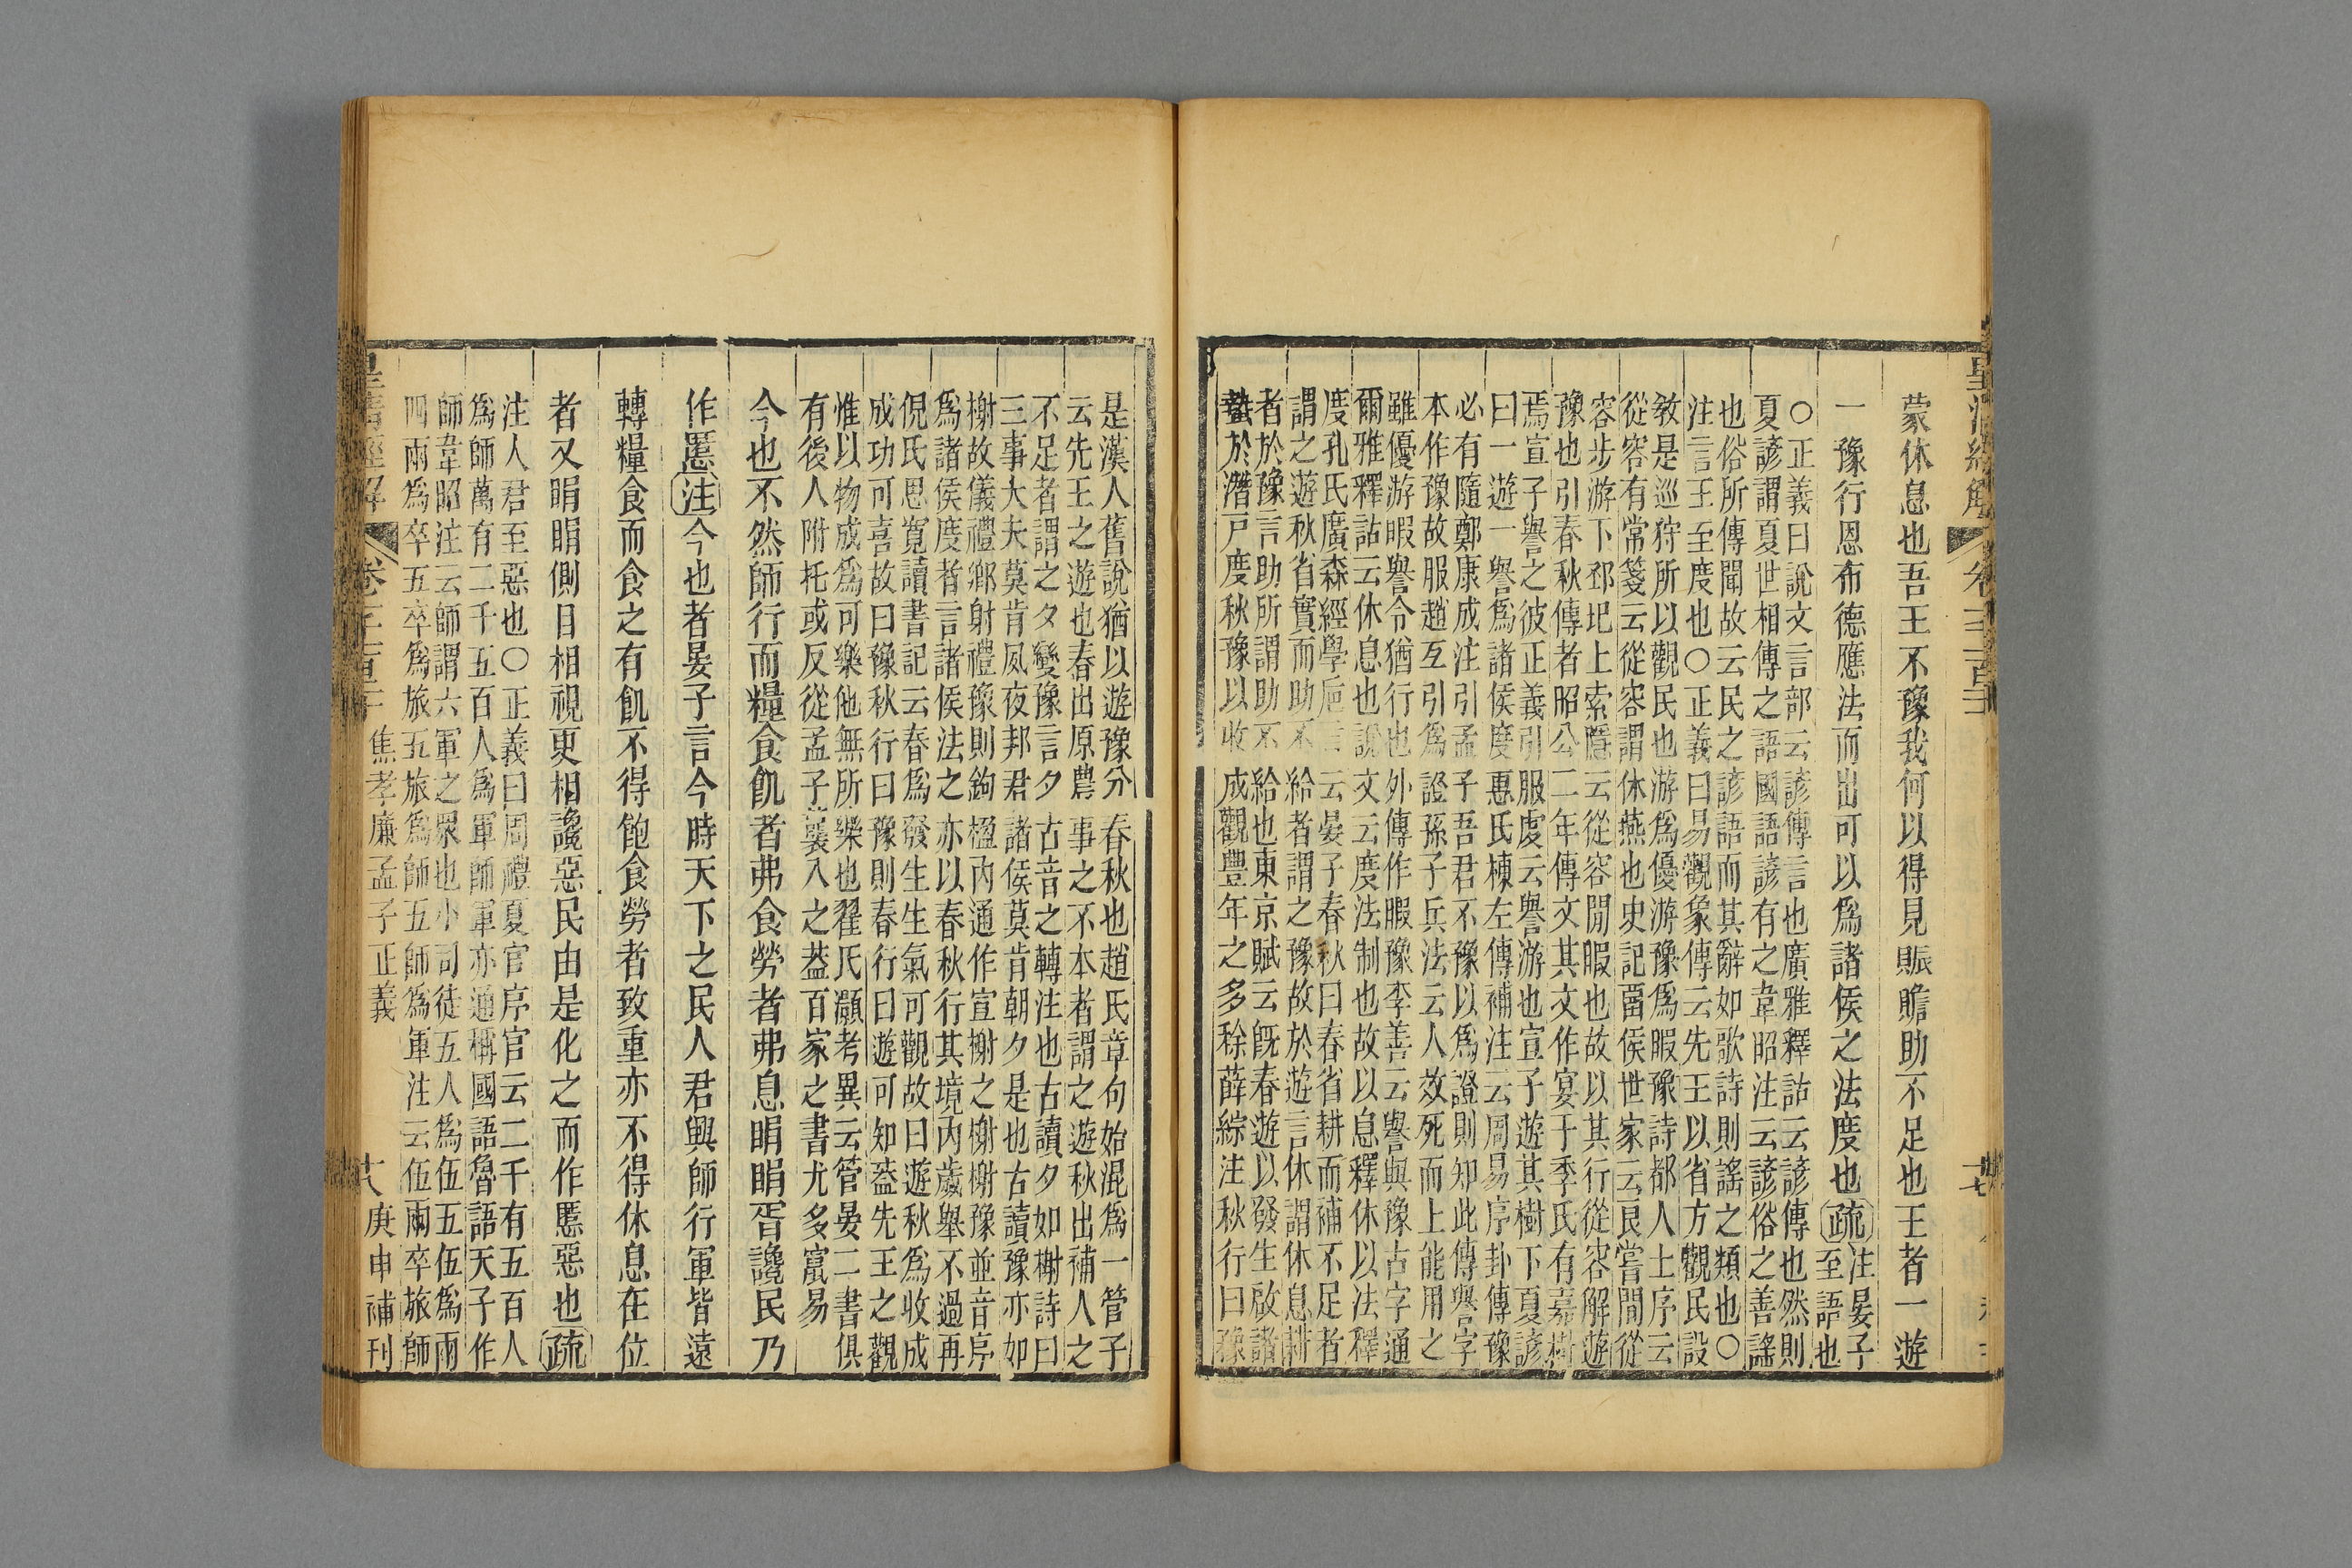 蒙休息也吾王不豫我何以得見賑贍助不足也王者一遊
一豫行恩布德應法而出可以爲諸侯之法度也疏注晏子
至語也
○正義曰說文言部云諺傳言也廣雅釋詁云諺傳也然則
夏諺謂夏世相傳之語國語諺有之韋昭注云諺俗之善謠
也俗所傳聞故云民之諺語而其辭如歌詩則謠之類也○
注言王至度也○正義曰易觀象傳云先王以省方觀民設
敎是巡狩所以觀民也游爲優游豫爲暇豫詩都人士序云
從容有常箋云從容謂休燕也史記畱侯世家云良嘗閒從
容步游下邳圯上索隱云從容閒暇也故以其行從容解遊
豫也引春秋傳者昭公二年傳文其文作宴于季氏有嘉樹
焉宣子譽之彼正義引服虔云譽游也宣子遊其樹下夏諺
曰一遊一譽爲諸侯度惠氏棟左傳補注云周易序卦傳豫
必有隨鄭康成注引孟子吾君不豫以爲證則知此傳譽字
本作豫故服趙互引爲證孫子兵法云人效死而上能用之
雖優游暇譽令猶行也外傳作暇豫李善云譽與豫古字通
爾雅釋詁云休息也說文云度法制也故以息釋休以法釋
度孔氏廣森經學巵言云晏子春秋曰春省耕而補不足者
謂之遊秋省實而助不給者謂之豫故於遊言休謂休息耕
者於豫言助所謂助不給也東京賦云旣春遊以發生啟諸
蟄於潛戸度秋豫以收成觀豐年之多稌薛綜注秋行曰豫
是漢人舊說猶以遊豫分春秋也趙氏章句始混爲一管子
云先王之遊也春出原農事之不本者謂之遊秋出補人之
不足者謂之夕變豫言夕古音之轉注也古讀夕如榭詩曰
三事大夫莫肯夙夜邦君諸侯莫肯朝夕是也古讀豫亦如
榭故儀禮鄉射禮豫則鉤楹內通作宣榭之榭榭豫並音序
爲諸侯度者言諸侯法之亦以春秋行其境內歲舉不過再
倪氏思寬讀書記云春爲發生生氣可觀故曰遊秋爲收成
成功可喜故曰豫秋行曰豫則春行曰遊可知葢先王之觀
惟以物成爲可樂他無所樂也翟氏灝考異云管晏二書俱
有後人附托或反從孟子襲入之葢百家之書尤多竄易
今也不然師行而糧食飢者弗食勞者弗息睊睊胥讒民乃
作慝注今也者晏子言今時天下之民人君興師行軍皆遠
轉糧食而食之有飢不得飽食勞者致重亦不得休息在位
者又睊睊側目相視更相讒惡民由是化之而作慝惡也疏
注人君至惡也○正義曰周禮夏官序官云二千有五百人
爲師萬有二千五百人爲軍師軍亦通稱國語魯語天子作
師韋昭注云師謂六軍之眾也小司徒五人爲伍五伍爲兩
四兩爲卒五卒爲旅五旅爲師五師爲軍注云伍兩卒旅師
焦孝廉孟子正義
十八
庚申補刊